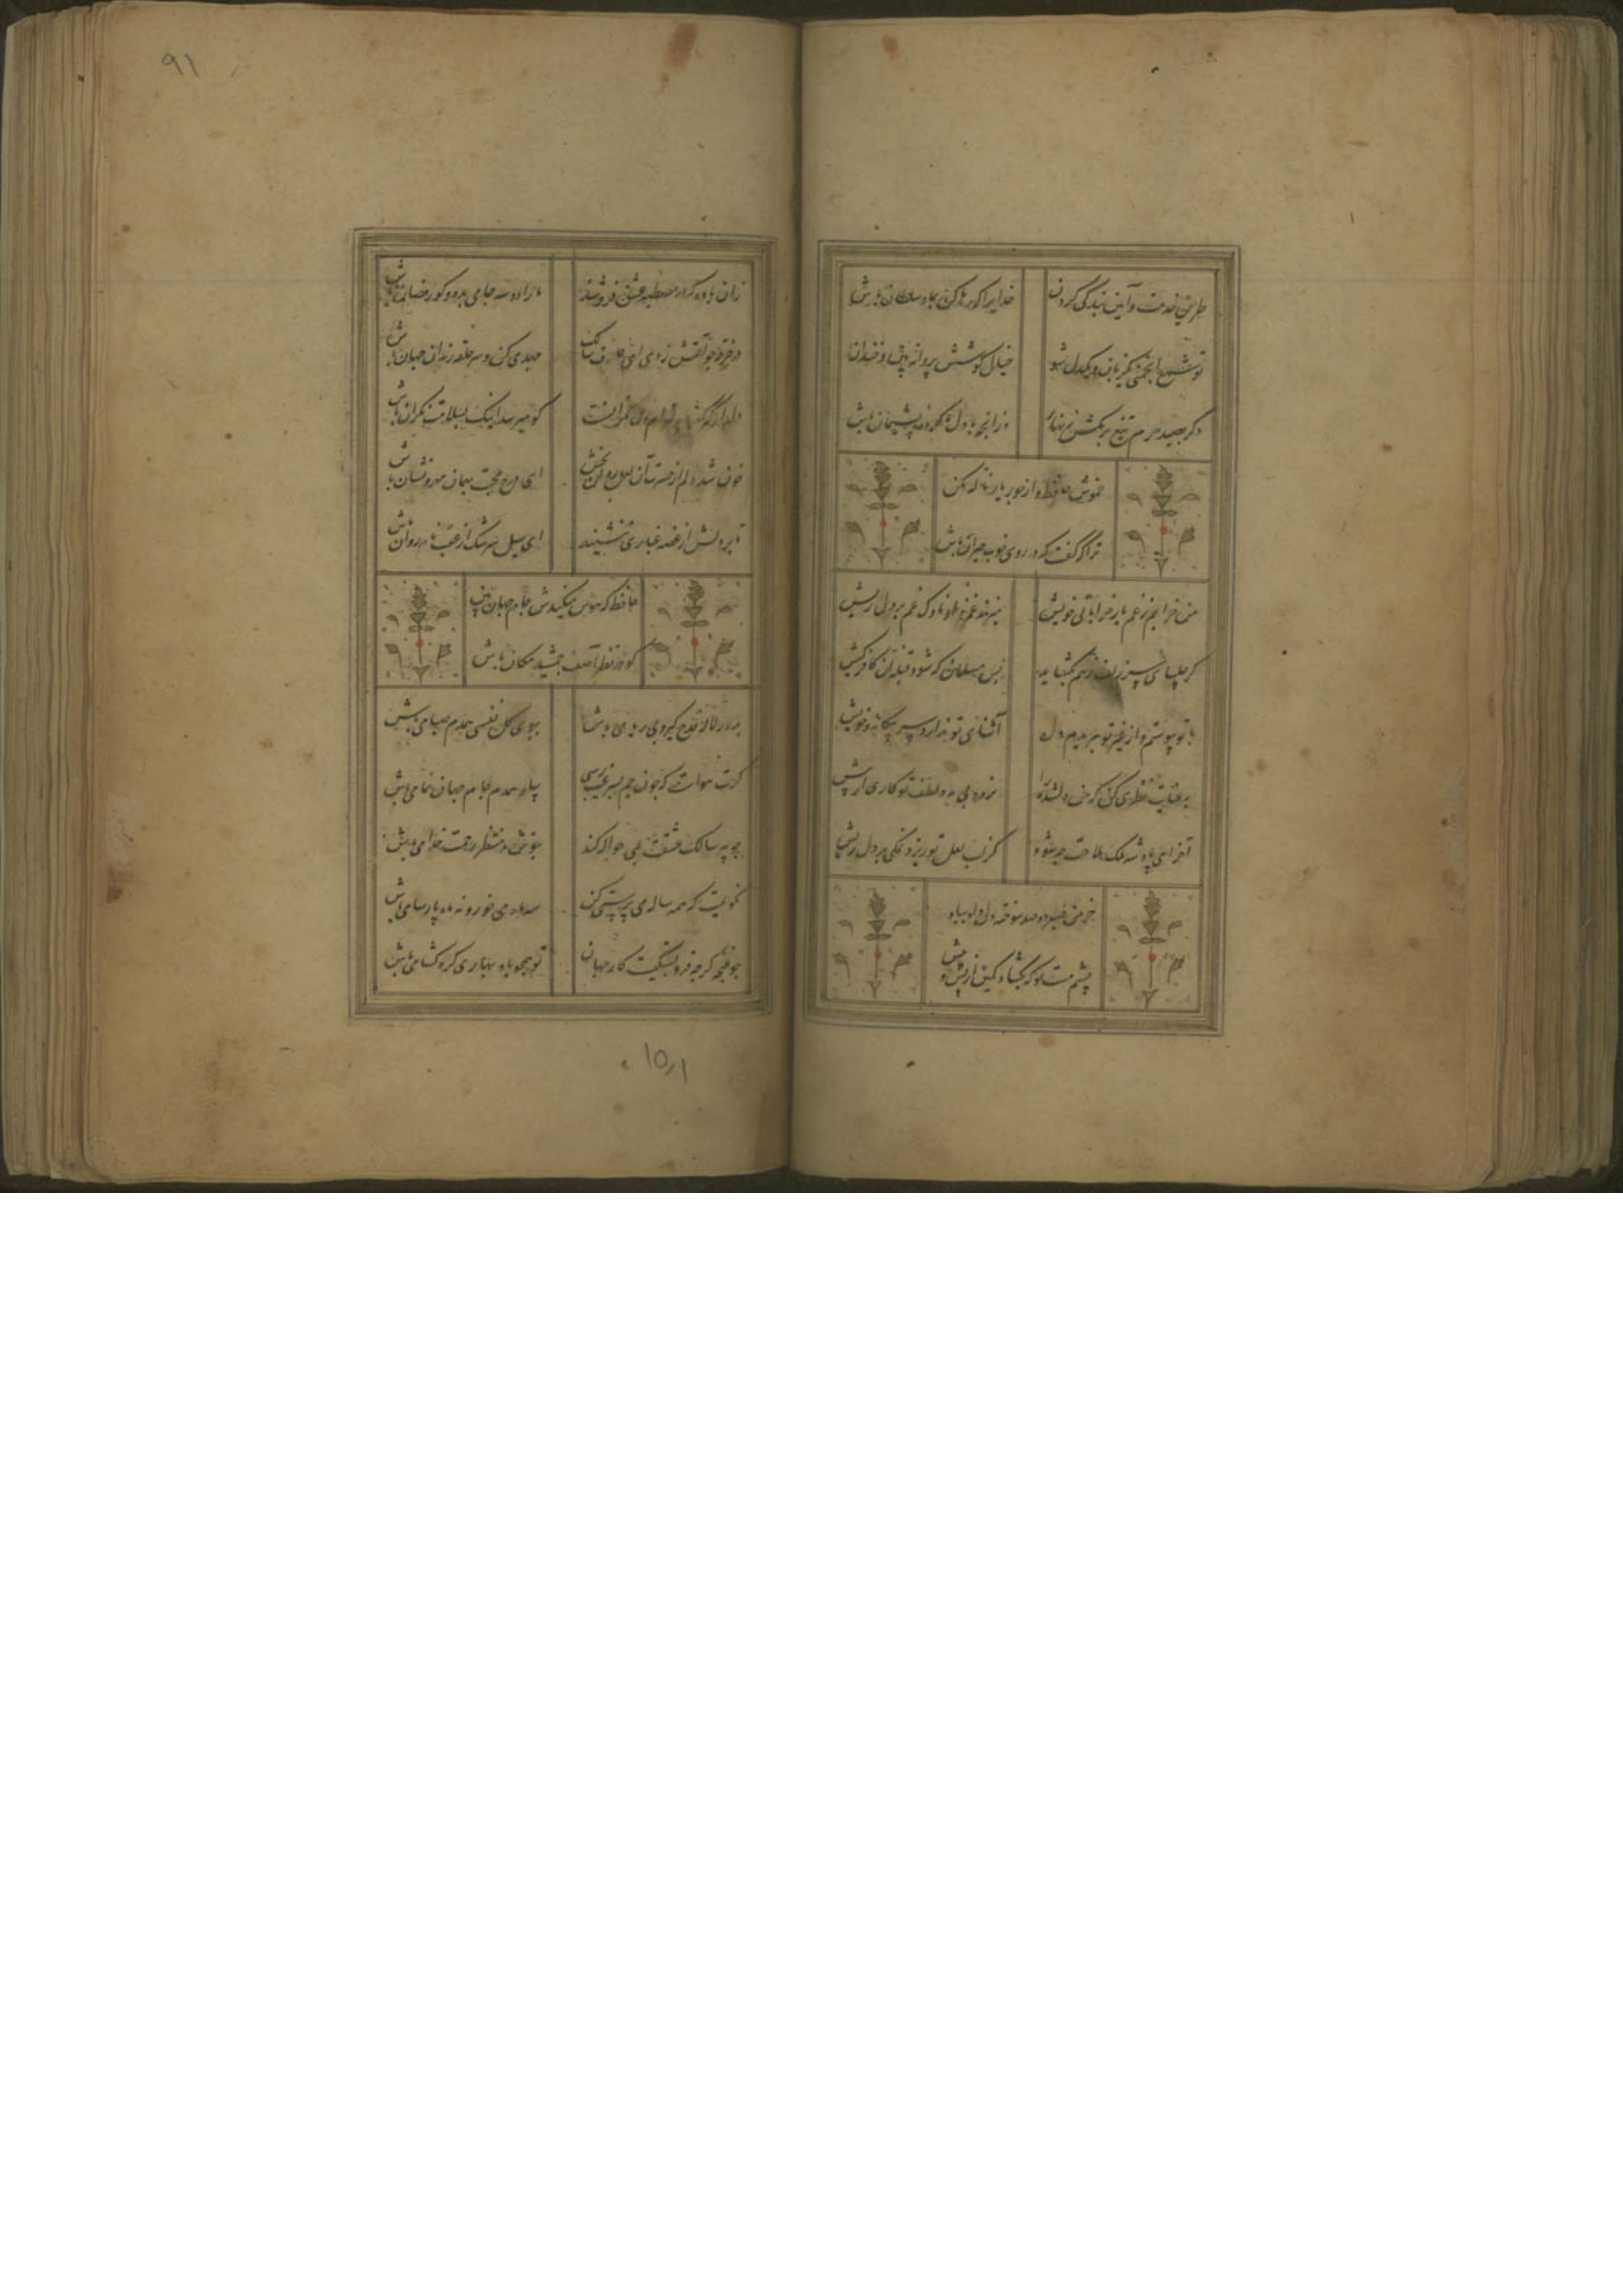 طریق خدمت و آیین بندگی کردن
خدایرا که رها کن بما و سلطان باش
تو شمع انجمنی یکزبان و یکدل شو
خیال کوشش پروانه بین و خندان
دکر بصید حرم تیغ برمکش زنهار
وزانچه با دل ما کرده پشیمان باش
خموش حافظ و از جور یار ناله مکن
ترا که گفت که در روی خوب حیران باش
من خرابم ز غم یار خراباتی خویش
میزند غمزه او ناوک غم بر دل ریش
کر چلیپای سر زلف ز هم بکشاید
بس مسلمان که شود فتنه آن کافر کیش
با تو پیوستم و از غیر تو ببریدم دل
آشنای تو ندارد سر بیکانه و خویش
بعنایت نظری کن که من دلشده را
نرود بی مدد لطف تو کاری از پیش
آخر ای پادشه ملک ملاحت چه شود
کر لب لعل تو ریزد نمکی بر دل ریش
خرمن صبر من سوخته دل داد بباد
چشم مست تو که بکشاد کمین از پس و پیش
زان باده که در مصطبه عشق فروشند
ما را دو سه جامی بده و کو رمضان باش
در خرقه چو آتش زدی ای عارف سالک
جهدی کن و سر حلقه رندان جهان باش
دلدار که گفتا بتوام دل نگرانست
کو میرسد اینک بسلامت نکران باش
خون شد دلم از حسرت آن لعل روان بخش
ای درج محبت بهمان مهر و نشان باش
تا بر دلش از غصه غباری ننشیند
ای سیل سرشک از عقب نامه روان باش
حافظ که هوس میکندش جام جهان بین
کو در نظر آصف جمشید مکان باش
بدور لاله قدح کیر و بی ریا می باش
ببوی کل نفسی همدم صبا می باش
کرت هواست که چون جم بسر غیب رسی
بیا و همدم جام جهان نما می باش
چو پیر سالک عشقت بمی حواله کند
بنوش و منتظر رحمت خدا می باش
نکویمت که همه ساله می پرستی کن
سه ماه می خور و نه ماه پارسا می باش
چو غنچه کرچه فروبستکیست کار جهان
تو همچو باد بهاری کره کشا می باش
۹۱